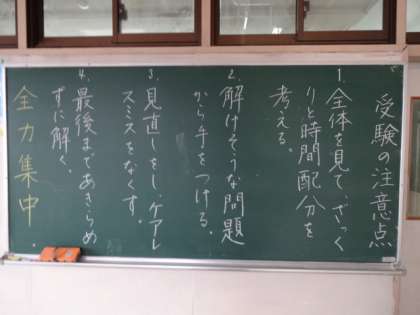 受験の注意点
1.全体を見て、ざっく
りと時間配分を
考える。
2.解けそうな問題
から手をつける。
3.見直しをし、ケアレ
スミスをなくす。
4.最後まであきらめ
ずに解く。
全力集中.